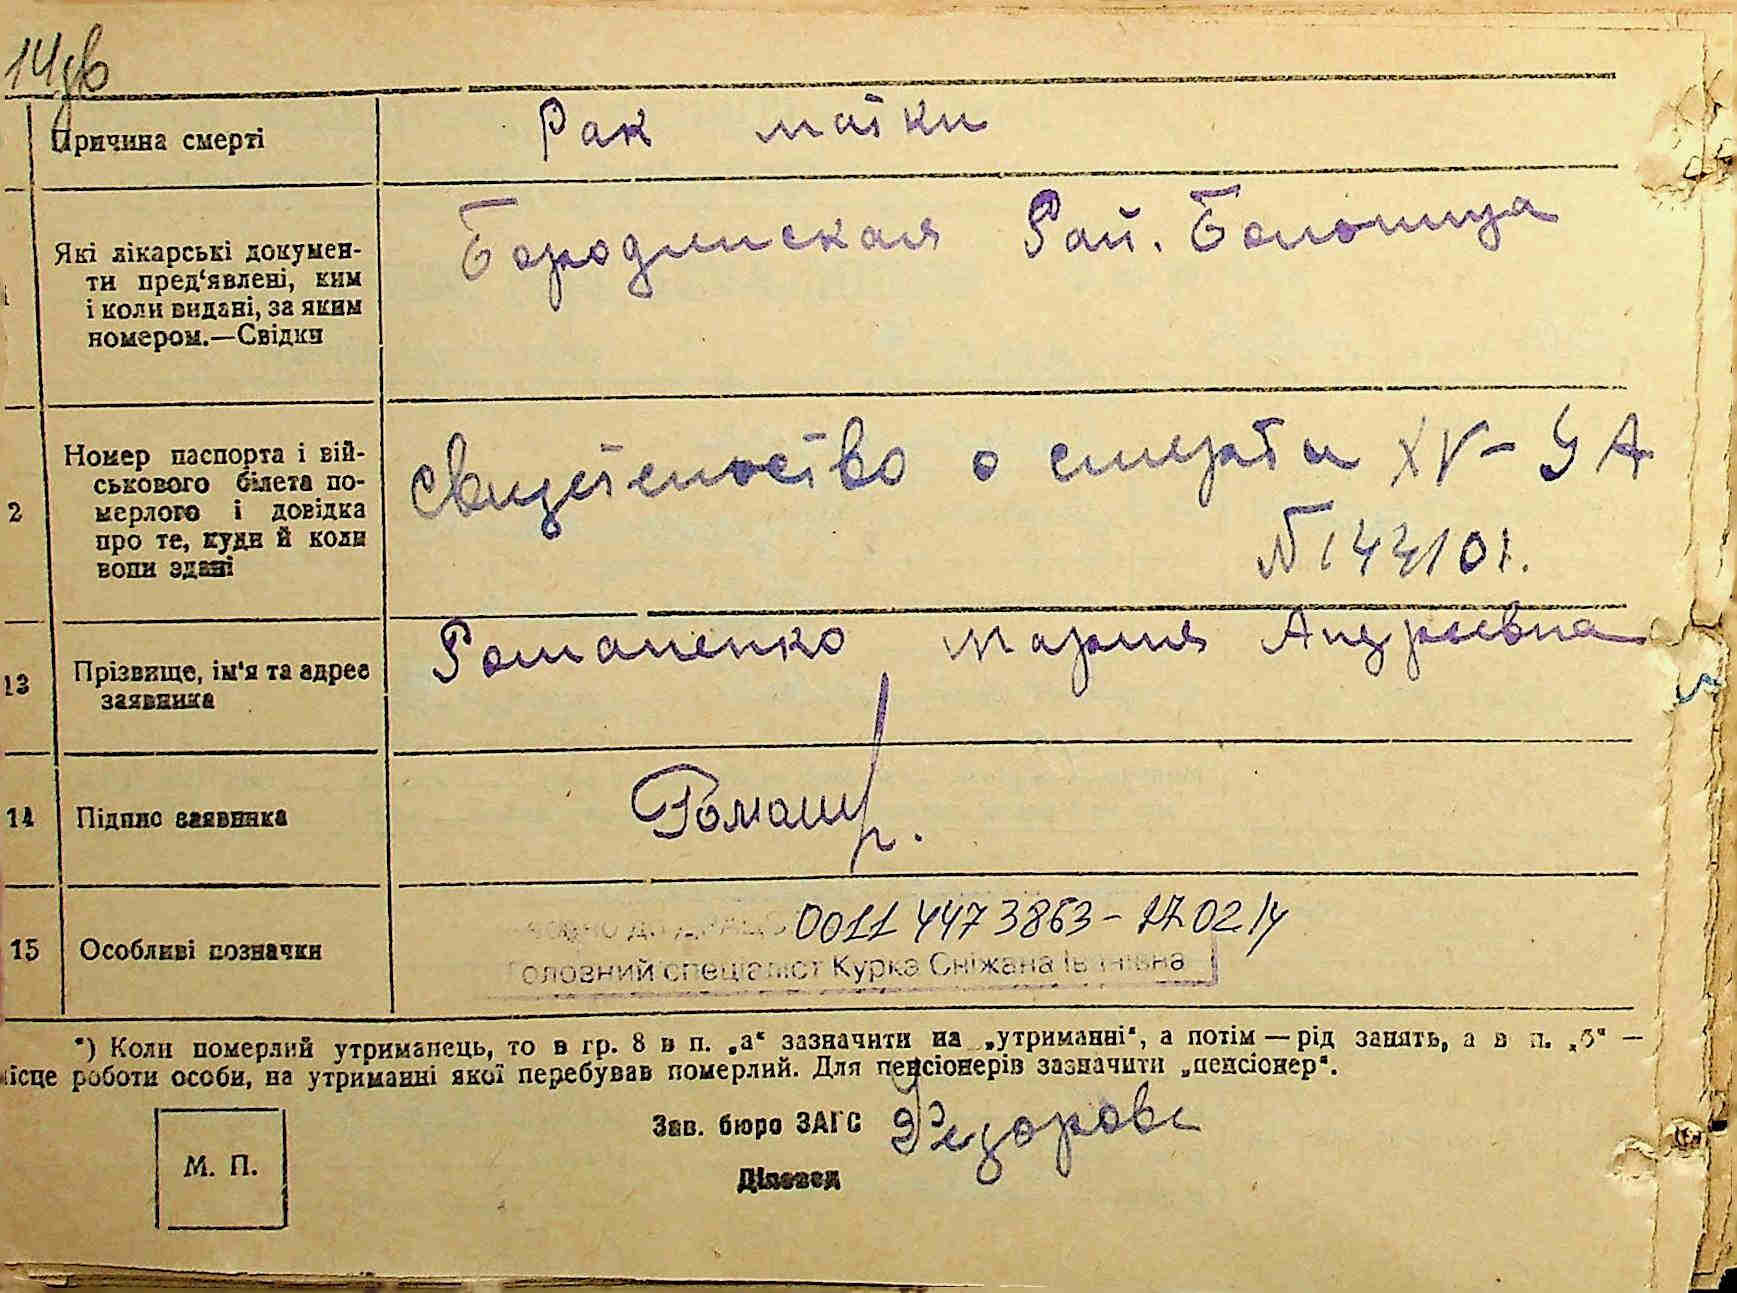 Причина смерті
Рак матки
Які лікарські докумен-
ти пред'явлені, ким
і коли видані, за яким
номером.—Свідки
Бородинская Рай. Больница
2
Номер паспорта і вій-
ськового білета по-
мерлого і довідка
про те, куди й коли
вони здані
Свидетельство о смерти XV–УА
N 143101.
13
Прізвище, ім'я та адрес
заявника
Романенко Мария Андреевна
14
Підпис заявника
15
Особливі позначки
00114473863 –
Головний спеціаліст Курка Сніжана Іванівна
*) Коли померлий утриманець, то в гр. 8 в п. „а“ зазначити на „утриманні“, а потім — рід занять, а в п. „б“ —
місце роботи особи, на утриманні якої перебував померлий. Для пенсіонерів зазначити „пенсіонер“.
Зав. бюро ЗАГС Федорова
Діловод
М. П.